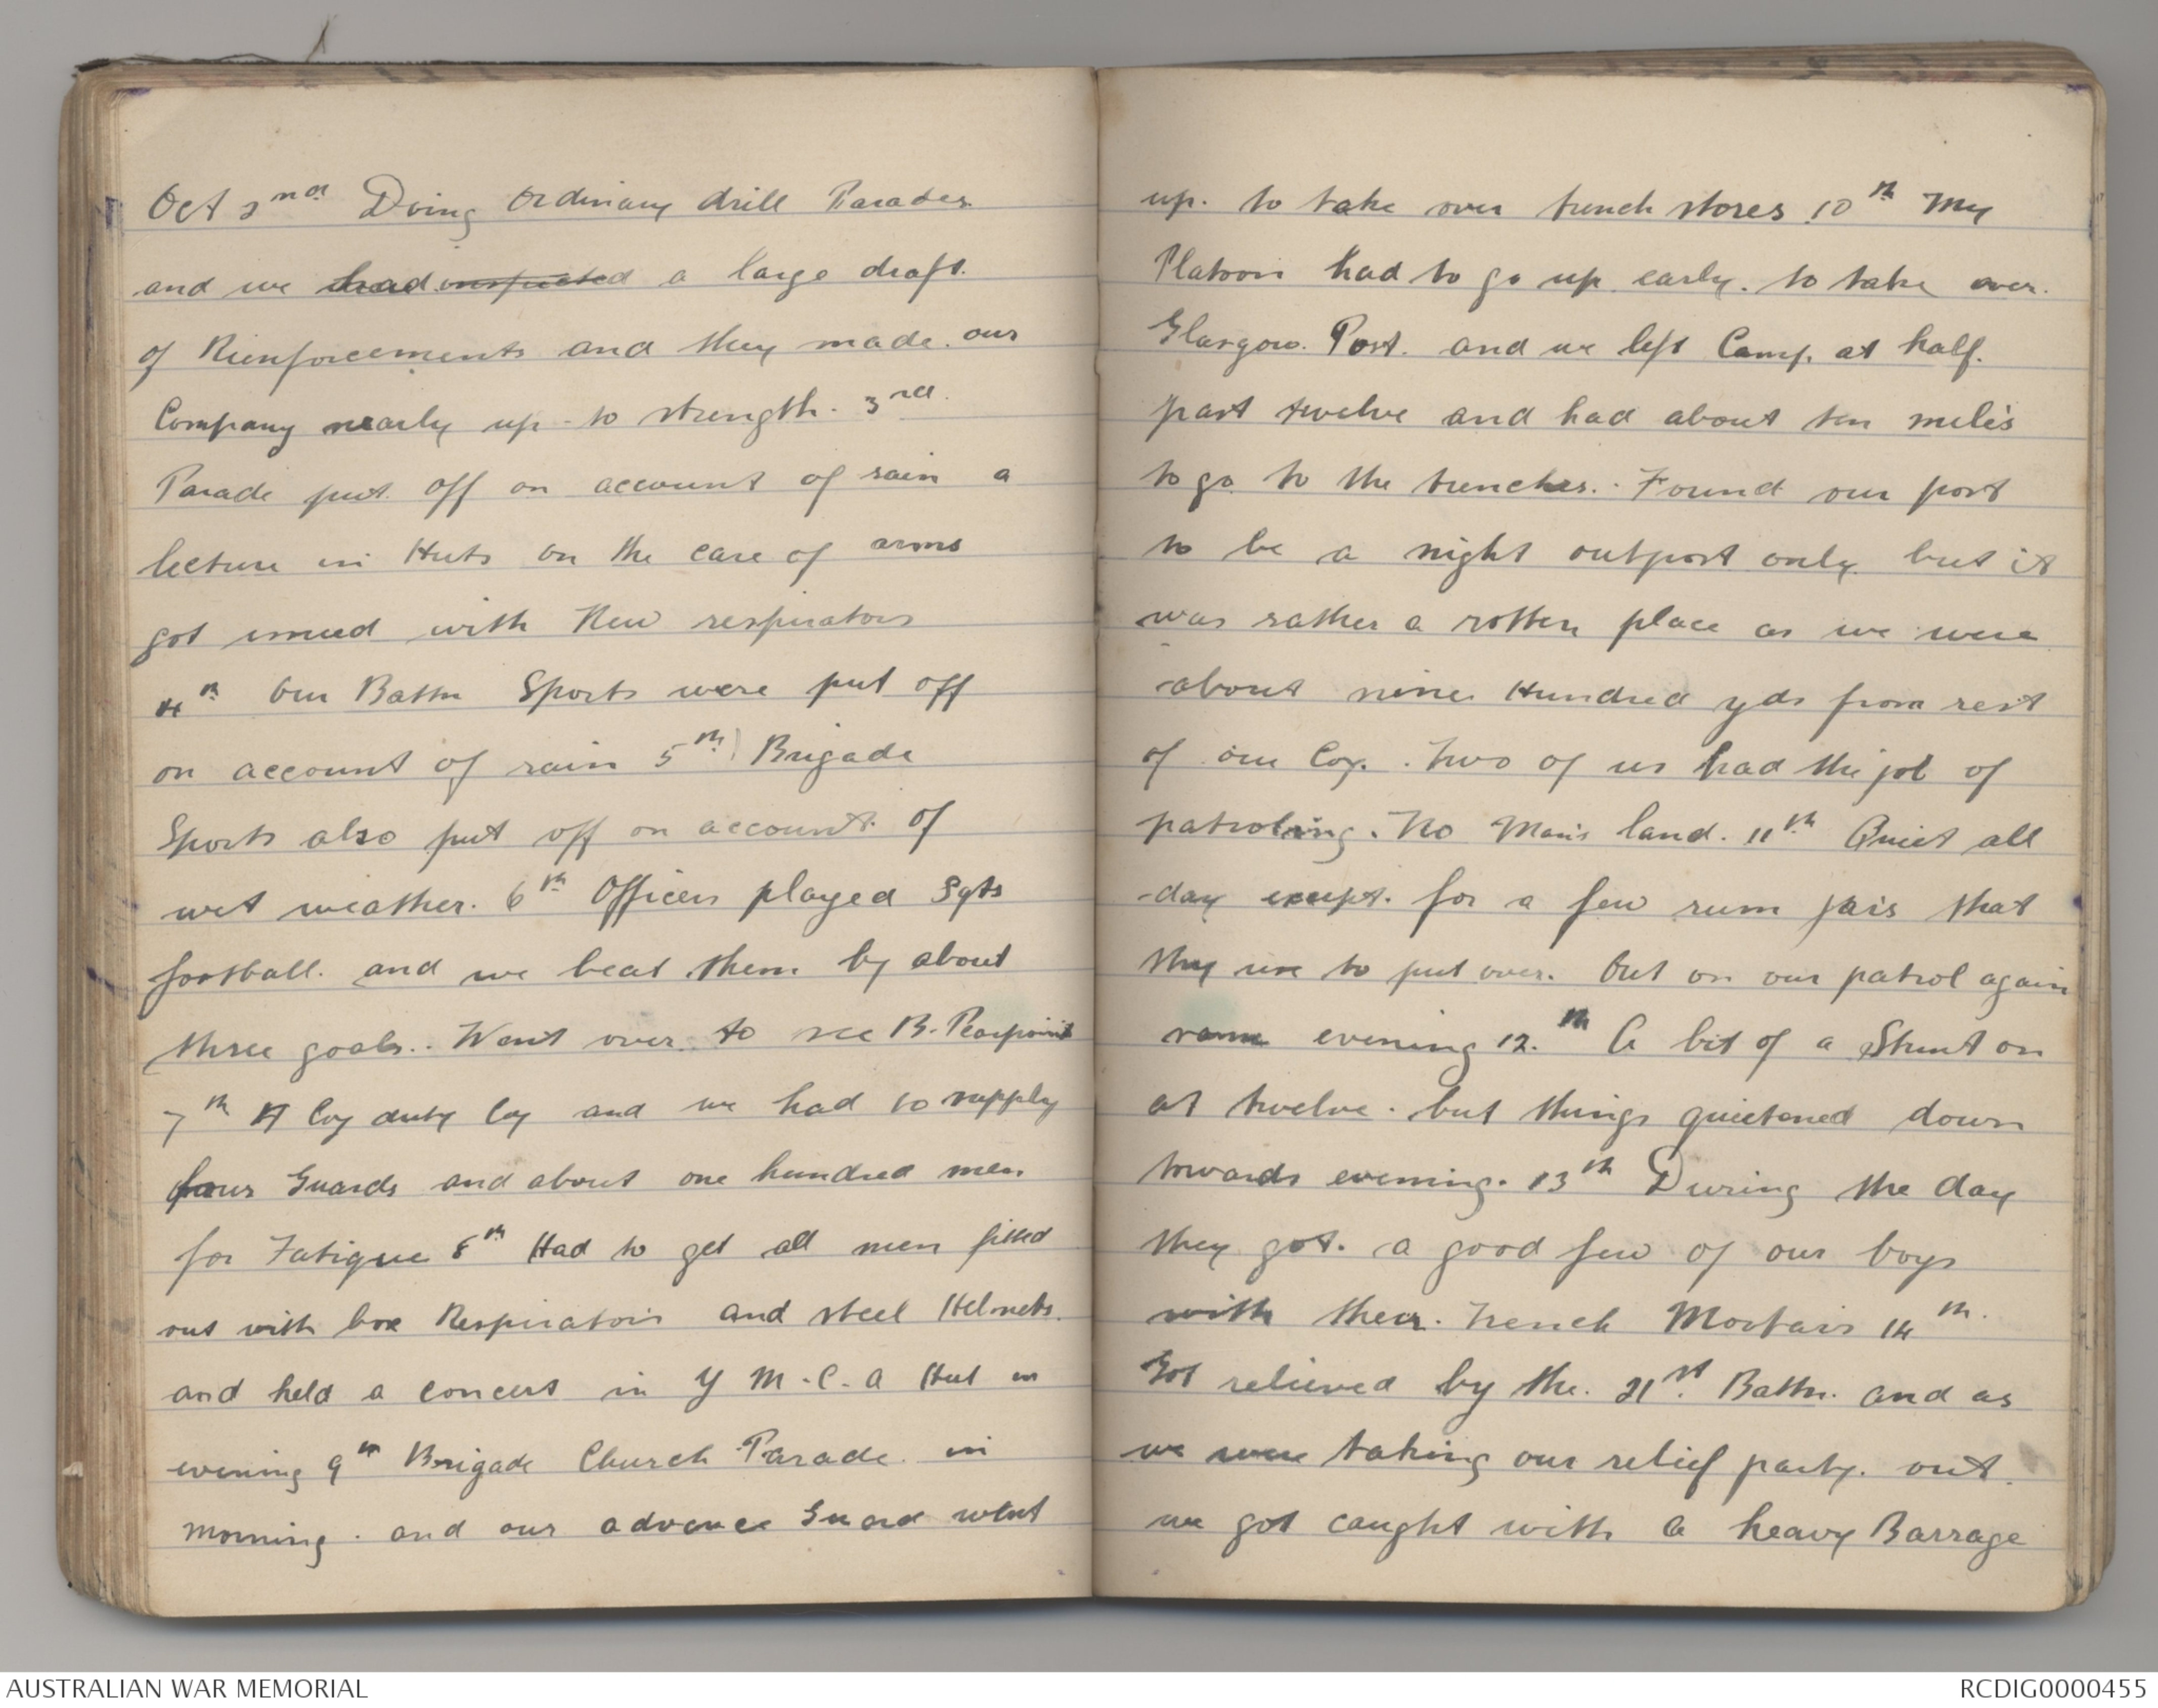 Oct 2nd Doing Ordinary drill Parades
and we had inspected a large draft.
of Rienforcements and they made. our
Company nearly up to strength. 3rd.
Parade put off on account of rain a
lecture in Huts on the care of arms
got issued with New respirators
4th Our Battn Sports were put off
on account of rain 5th Brigade
Sports also put off on account of
wet weather. 6th Officers played Sgts
football. and we beat them by about
three goals.. Went over to see B. Pearpoint
7th A Coy duty Coy and we had to supply
four Guards and about one hundred men
for Fatigue 8th Had to get all men fitted
out with box Respirators and steel Helmets.
and held a concert in Y M.C.A Hut in
evening 9th Brigade Church Parade. in
morning. and our advance Guard went
up. to take over trench stores. 10th My
Platoon had to go up early. to take over.
Glasgow. Post. and we left Camp. at half.
past twelve and had about ten miles
to go to the trenches.. Found our post
to be a night outpost only but it
was rather a rotten place as we were
about nine Hundred yds from rest
of our Coy.. Two of us had the job of
patroling. No Man's land. 11th Quiet all
day except. for a few rum jars that
they use to put over. Out on our patrol again
same evening 12.th A bit of a Stunt on
at twelve. but things quietened down
towards evening. 13th During the day
they got. a good few of our boys
with their. Trench Mortars 14th.
Got relieved by the. 21st. Battn. and as
we were taking our relief party. out.
we got caught with a heavy Barrage
AUSTRALIAN WAR MEMORIAL
RCDIG0000455